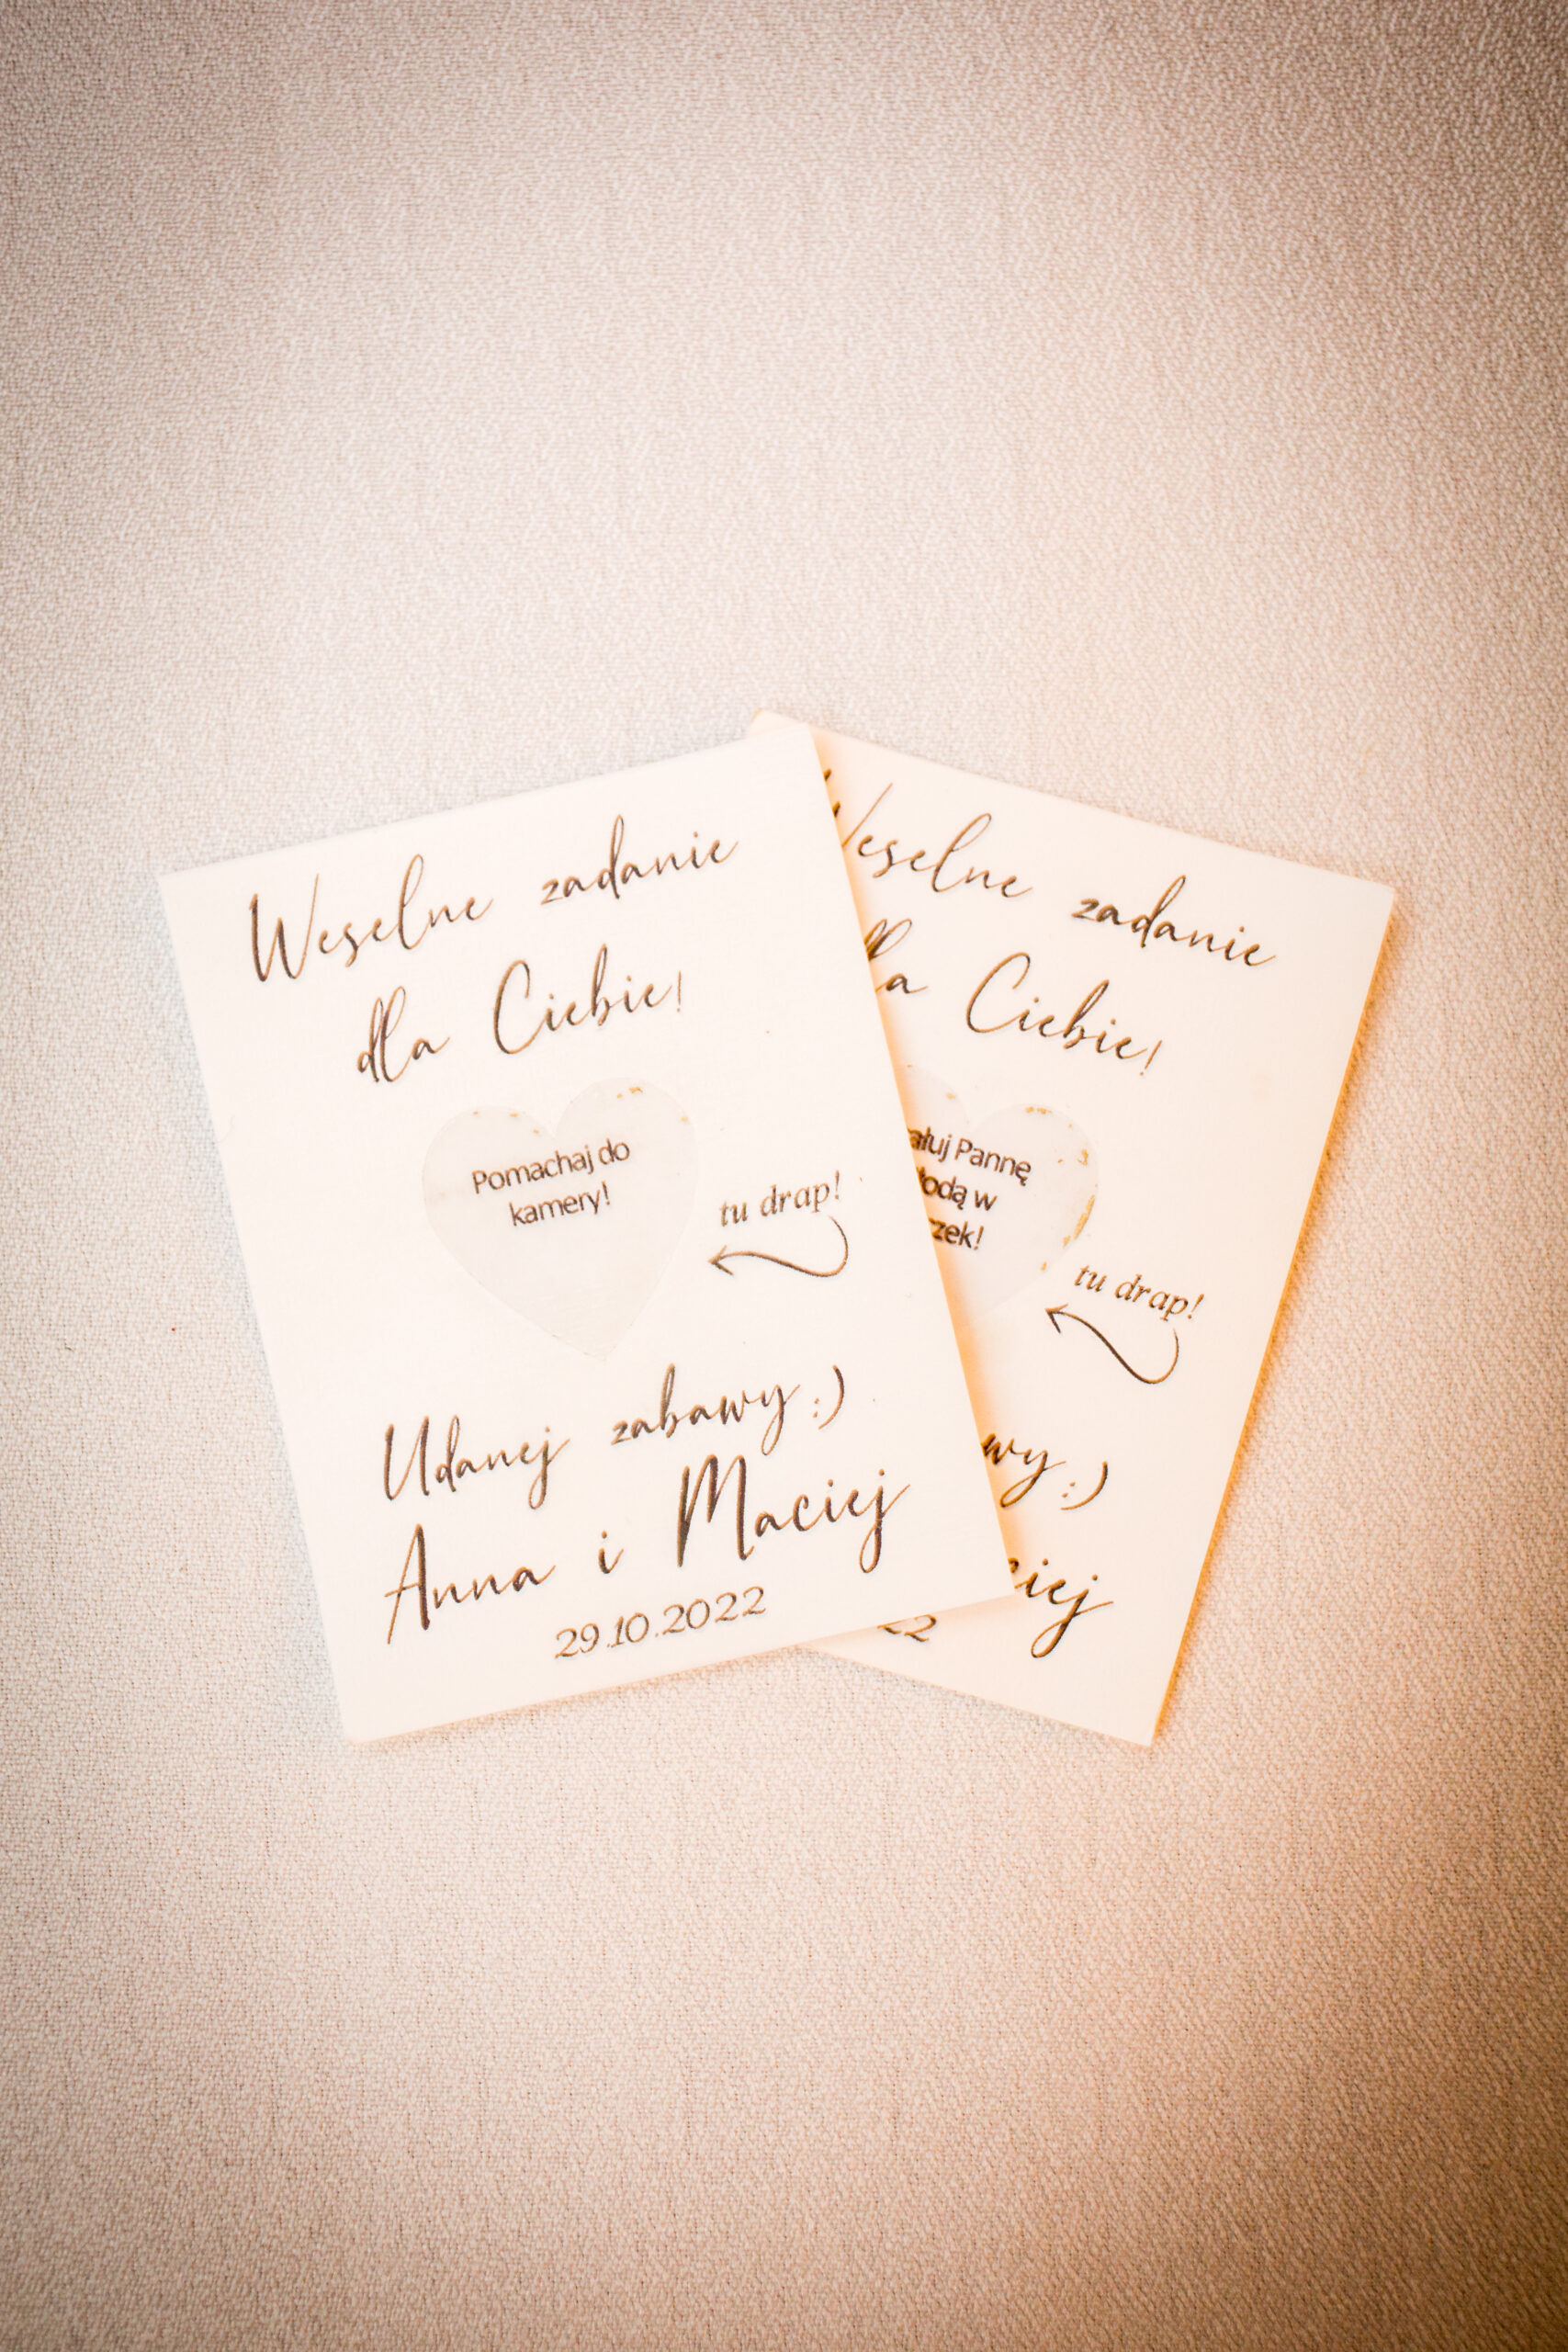 Weselne zadanie
dla Ciebie!
Pomachaj do
kamery!
tu drap!
Udanej zabawy :)
Anna i Maciej
29.10.2022
Weselne zadanie
dla Ciebie!
Pannę
w
tu drap!
:)